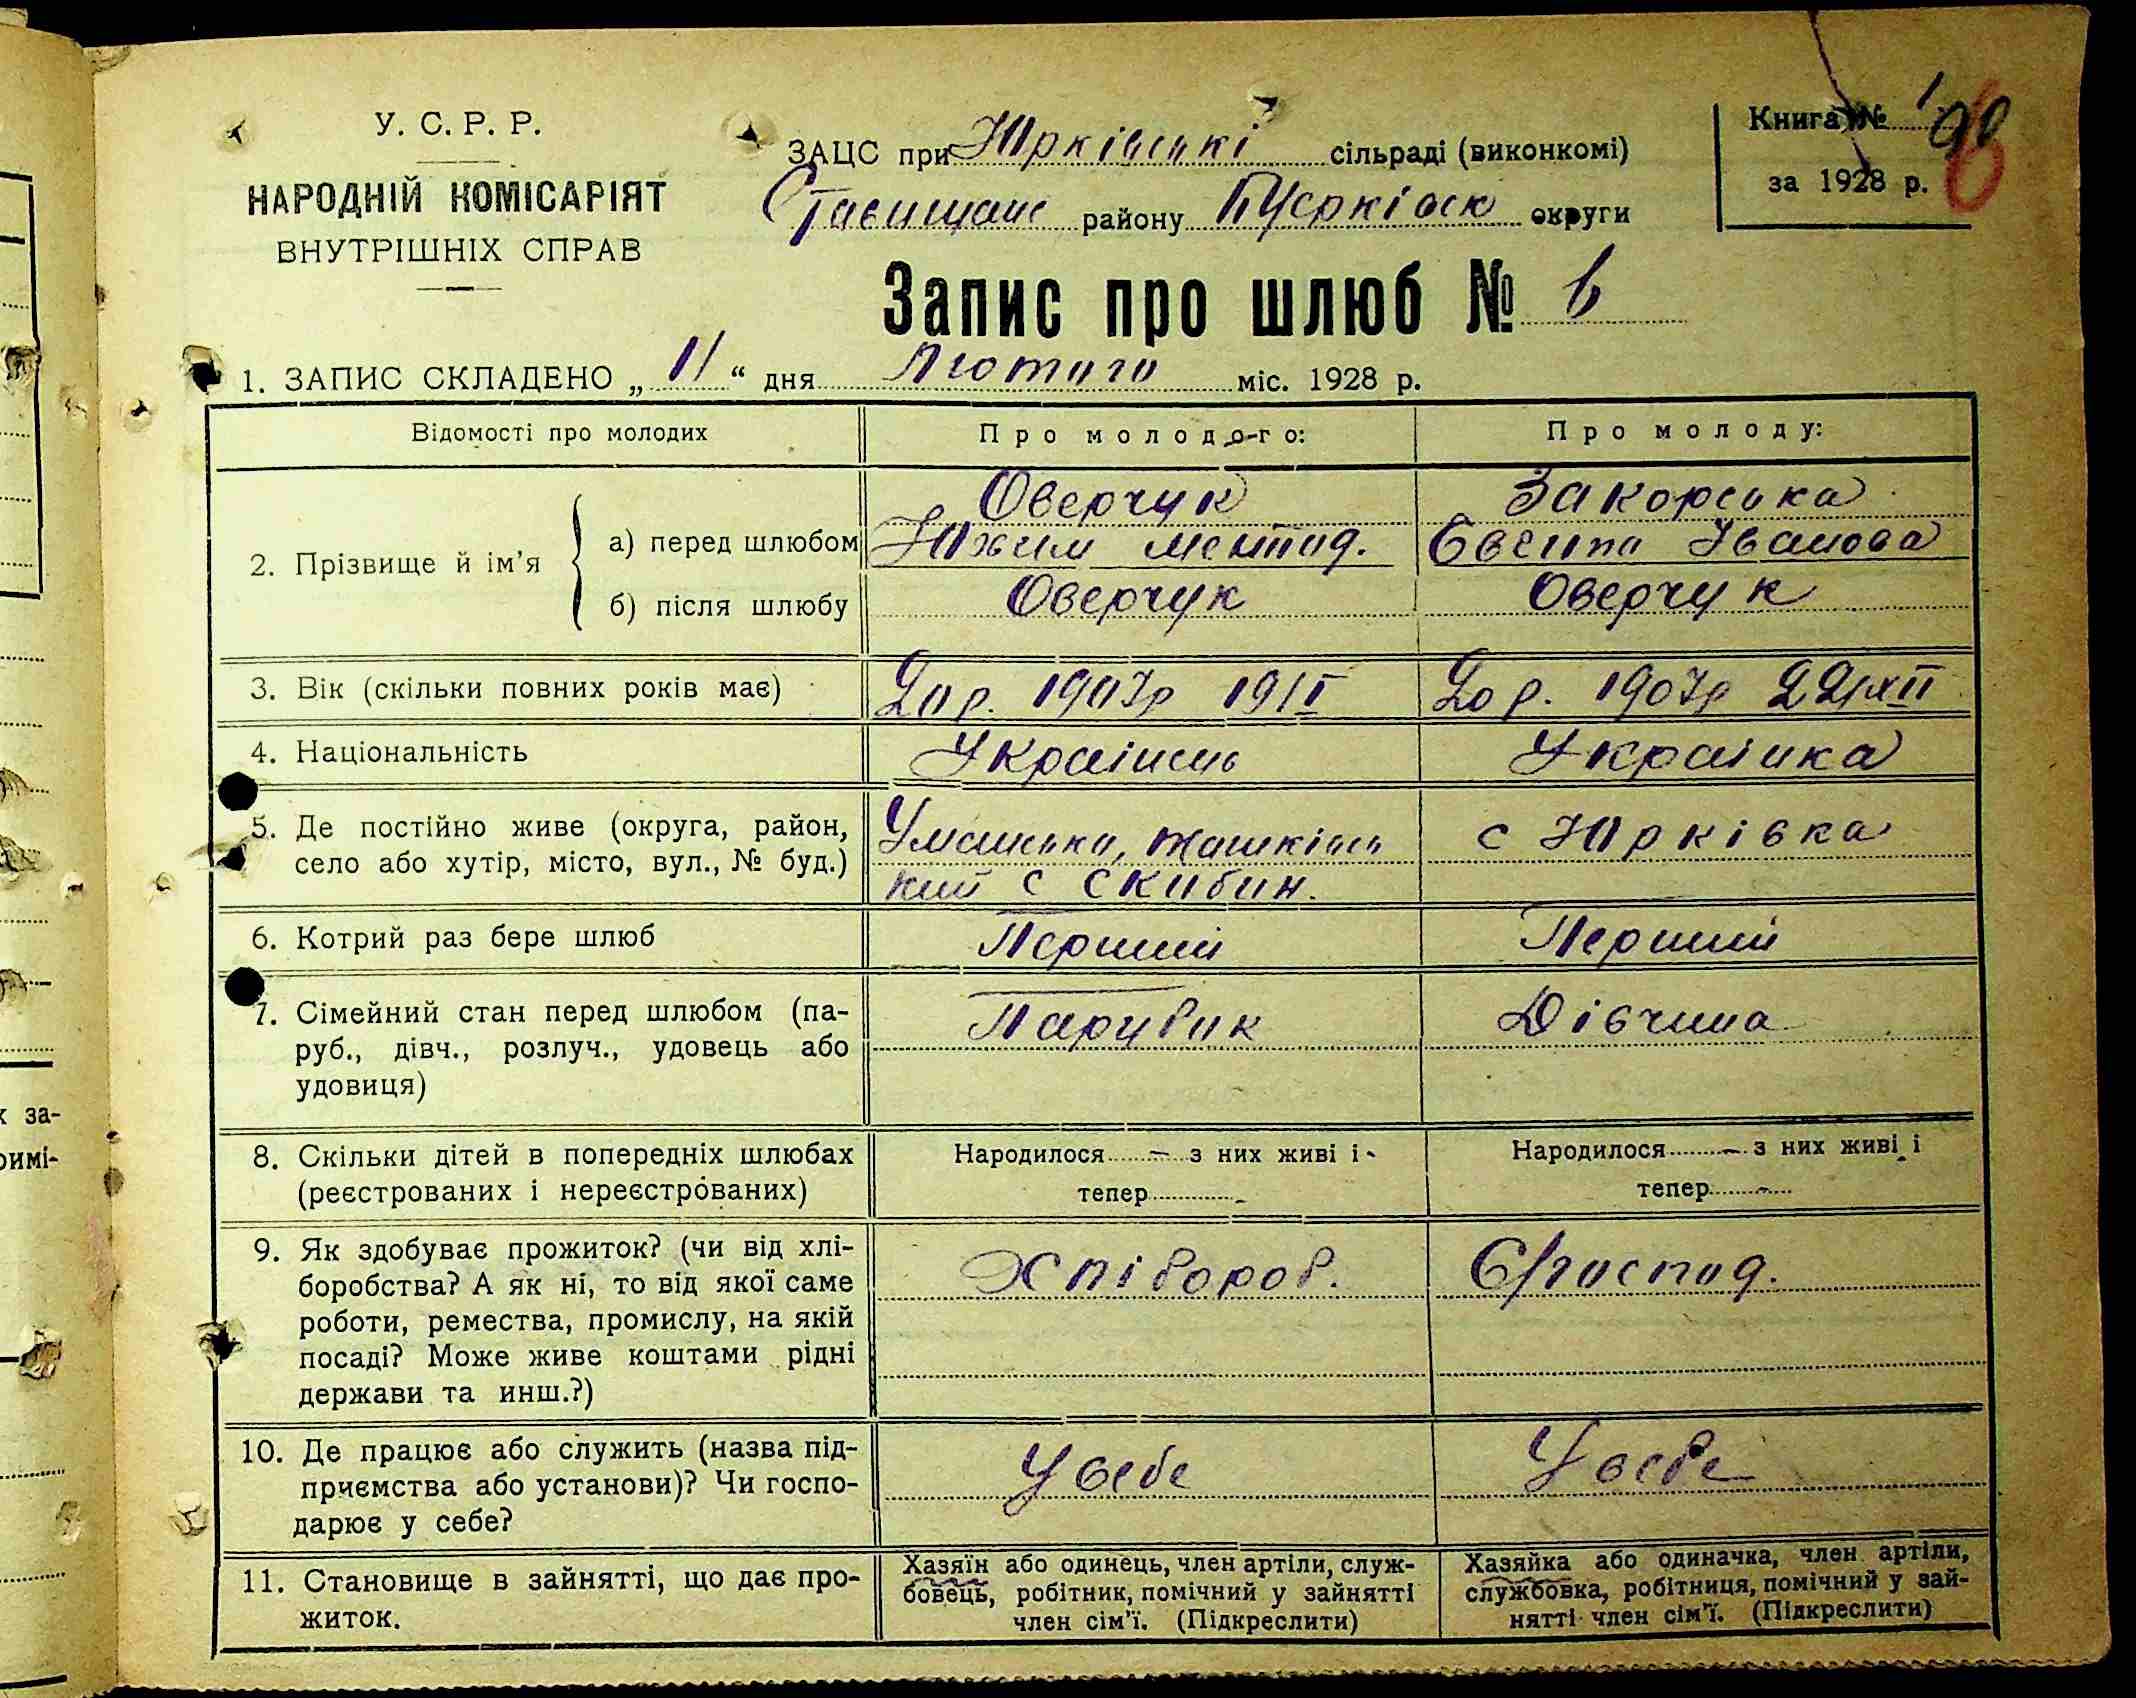 У. С. Р. Р.
НАРОДНІЙ КОМІСАРІЯТ
ВНУТРІШНІХ СПРАВ
ЗАЦС при Юрківські сільраді (виконкомі)
Ставищанс району округи
Книга №
за 1928 р.
Запис про шлюб №
1. ЗАПИС СКЛАДЕНО „ 11 “ дня Лютого міс. 1928 р.
Відомості про молодих
Про молодого:
Про молоду:
2. Прізвище й ім’я
а) перед шлюбом
Оверчук
Юхим
Закорська
Іванова
б) після шлюбу
Оверчук
Оверчук
3. Вік (скільки повних років має)
20 р. 1907р 19/I
20 р. 1907р 22/XII
4. Національність
Українець
Українка
5. Де постійно живе (округа, район,
село або хутір, місто, вул., № буд.)
Уманська, Жашківсь
кий с Скибин.
с Юрківка
6. Котрий раз бере шлюб
Перший
Перший
7. Сімейний стан перед шлюбом (па-
руб., дівч., розлуч., удовець або
удовиця)
Парубик
Дівчина
8. Скільки дітей в попередніх шлюбах
(реєстрованих і нереєстрованих)
Народилося – з них живі і
тепер -
Народилося – з них живі і
тепер -
9. Як здобуває прожиток? (чи від хлі-
боробства? А як ні, то від якої саме
роботи, ремества, промислу, на якій
посаді? Може живе коштами рідні
держави та инш.?)
Хлібороб.
10. Де працює або служить (назва під-
приємства або установи)? Чи госпо-
дарює у себе?
У себе
У себе
11. Становище в зайнятті, що дає про-
житок.
Хазяїн або одинець, член артіли, служ-
бовець, робітник, помічний у зайнятті
член сім’ї. (Підкреслити)
Хазяйка або одиначка, член артіли,
службовка, робітниця, помічний у зай-
нятті член сім’ї. (Підкреслити)